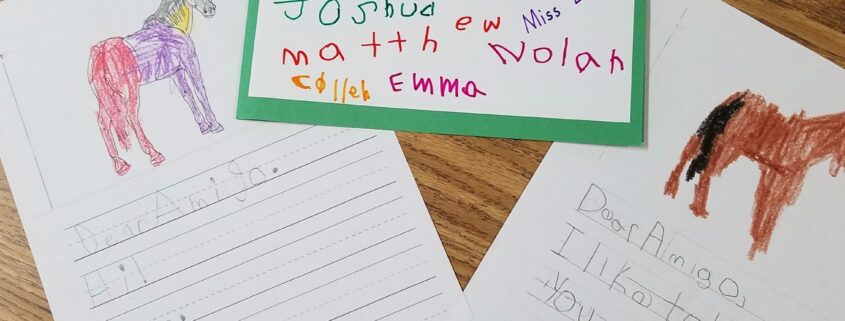 Joshua
matthew Miss
Nolan
Colleh Emma
Dear Amigo.
Hi!
Dear Amigo,
I like to
You